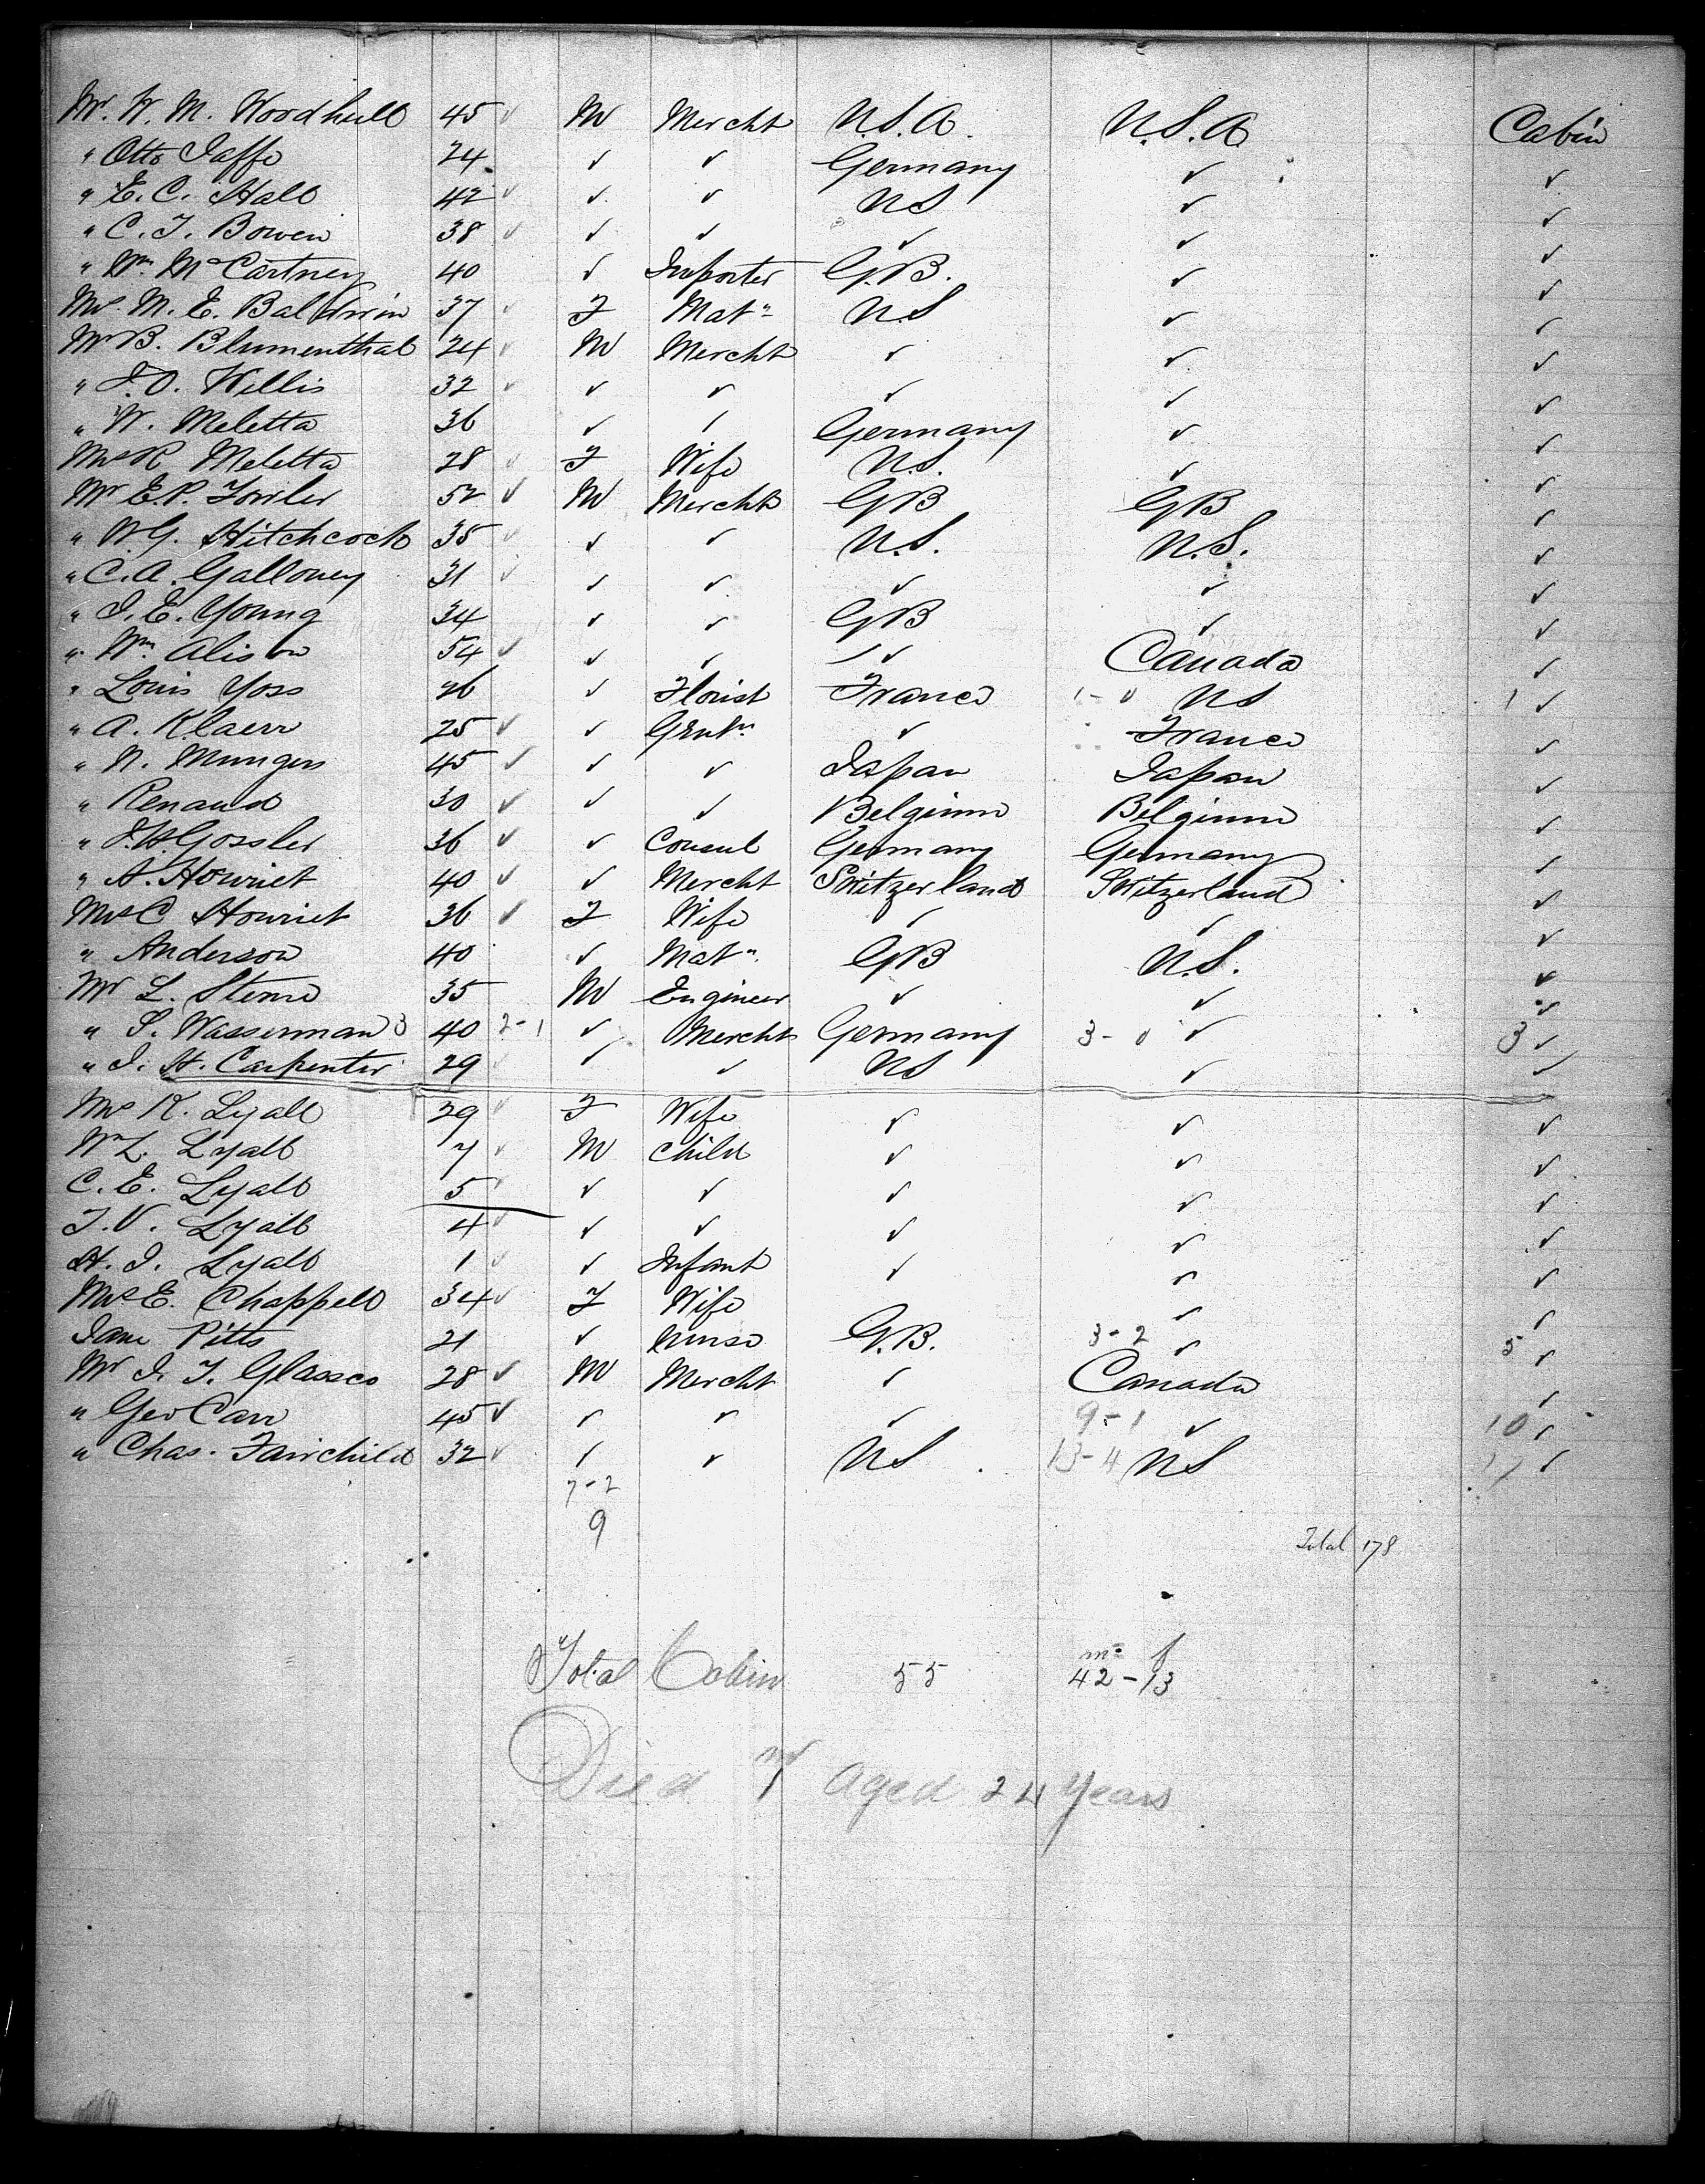 Mr. W. M. Woodhull 45 ✓ M Mercht U.S.A. U.S.A Cabin
" Otto Jaffe 24 ✓ ✓ Germany ✓ ✓
" E. C. Hall 42 ✓ ✓ ✓ US ✓ ✓
" C. T. Bowen 38 ✓ ✓ ✓ ✓ ✓ ✓
" Wm McCartney 40 ✓ Importer G.B. ✓ ✓
Mrs. M. E. Baldwin 37 ✓ F Matn US ✓ ✓
Mr B. Blumenthal 24 ✓ M Mercht ✓ ✓ ✓
" J. O. Willis 32 ✓ ✓ ✓ ✓ ✓ ✓
" W. Meletta 36 ✓ ✓ Germany ✓ ✓
Mrs R Meletta 28 ✓ F Wife U.S. ✓ ✓
Mr E. P. Fowler 52 ✓ M Mercht GB GB ✓
" W G. Hitchcock 35 ✓ ✓ ✓ U.S. U.S. ✓
" C. A. Galloney 31 ✓ ✓ ✓ ✓ ✓ ✓
" J. E. Young 34 ✓ ✓ GB ✓ ✓
" Wm Alison 54 ✓ ✓ ✓ ✓ Canada ✓
" Louis Yoss 26 ✓ Florist France 1-0 US 1 ✓
" A. Klaerr 25 ✓ ✓ Gentn ✓ France ✓
" N. Mungers 45 ✓ ✓ ✓ Japan Japan ✓
" Renaud 30 ✓ ✓ ✓ Belgium Belgium ✓
" J. H Gossler 36 ✓ ✓ Consul Germany Germany ✓
" A. Houriet 40 ✓ ✓ Mercht Switzerland Switzerland ✓
Mrs C Houriet 36 ✓ F Wife ✓ ✓ ✓
" Anderson 40 ✓ Matn. GB U.S. ✓
Mr L. Sterne 35 M Engineer ✓ ✓ ✓
" S. Wasserman 3 40 2-1 ✓ Mercht Germany 3-0 ✓ 3 ✓
" J. H. Carpenter 29 ✓ ✓ ✓ US ✓ ✓
Mrs K. Lyall 29 ✓ F Wife ✓ ✓ ✓
Wm L. Lyall 7 ✓ M Child ✓ ✓ ✓
C. E. Lyall 5 ✓ ✓ ✓ ✓ ✓ ✓
T. V. Lyall 4 ✓ ✓ ✓ ✓ ✓ ✓
H. J. Lyall 1 ✓ ✓ Infant ✓ ✓ ✓
Mrs E. Chappell 34 ✓ F Wife ✓ ✓
Jane Pitts 21 ✓ Nurse G.B. 3-2 ✓ 5 ✓
Mr J. T. Glassco 28 ✓ M Mercht ✓ Canada ✓
" Geo Carr 45 ✓ ✓ ✓ ✓ 9-1 ✓ 10 ✓
" Chas. Fairchild 32 ✓ ✓ ✓ US 13-4 US 17 ✓
7-2
9
Total 178
m f
Total Cabin 55 42-13
Died aged 24 years